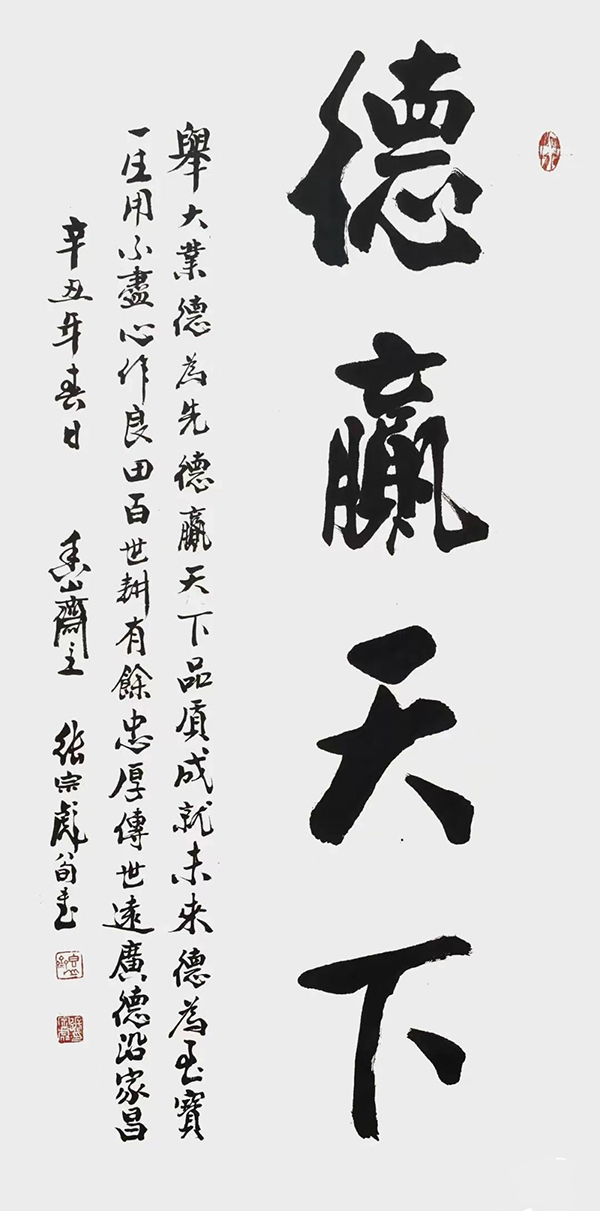 德贏天下
舉大業德為先德贏天下品質成就未來德為至寶
一生用不盡心作良田百世耕有餘忠厚傳世遠廣德沿家昌
辛丑年春日 泰山齋主 張宗彪敬書